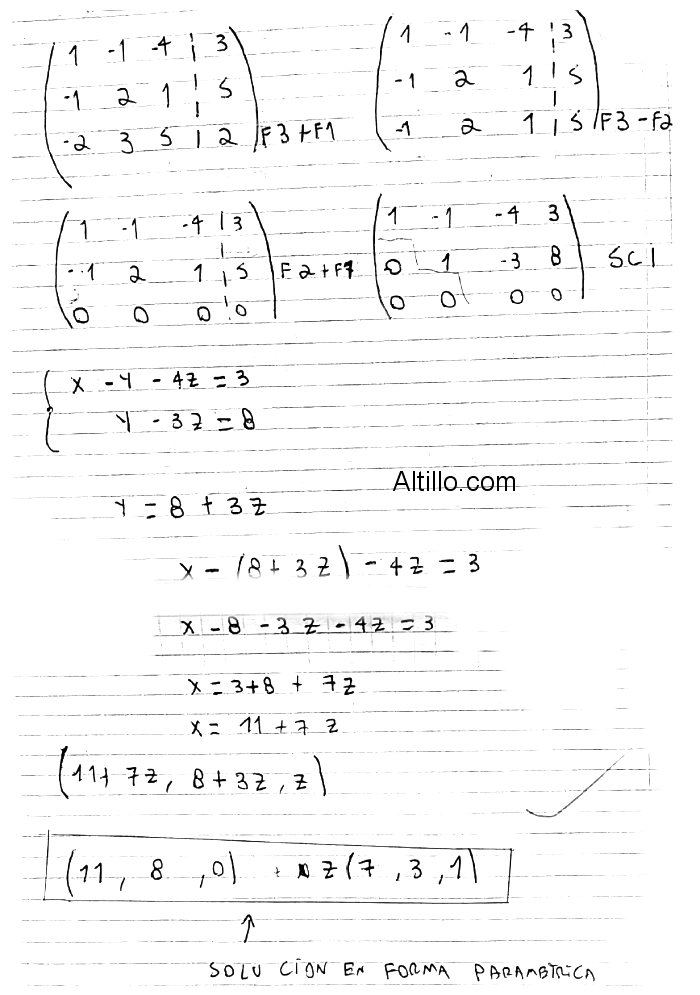 1 -1 -4 | 3
-1 2 1 | 5
-2 3 5 | 2 F3+F1
1 -1 -4 | 3
-1 2 1 | 5
-1 2 1 | 5 F3-F2
1 -1 -4 | 3
-1 2 1 | 5 F2+F1
0 0 0 | 0
1 -1 -4 3
0 1 -3 8 SCI
0 0 0 0
x - y - 4z = 3
y - 3z = 8
Altillo.com
y = 8 + 3z
x - (8 + 3z) - 4z = 3
x - 8 - 3z - 4z = 3
x = 3+8 + 7z
x = 11 + 7z
(11+ 7z, 8+3z, z)
(11, 8, 0) + z(7, 3, 1)
SOLUCION EN FORMA PARAMETRICA